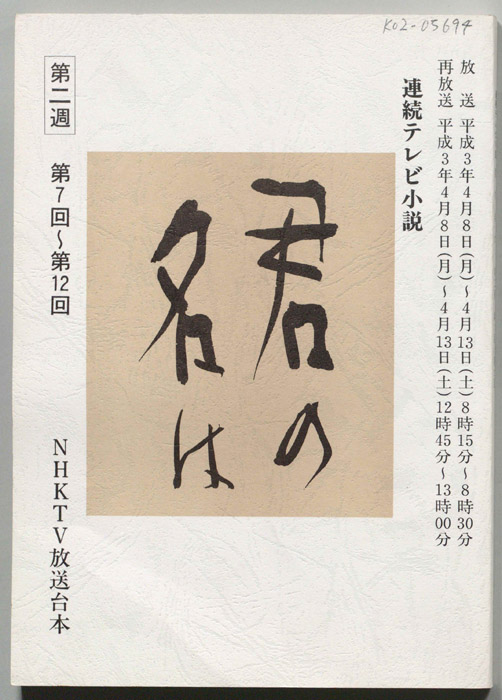 K02-05694
放送 平成3年4月8日(月)～4月13日(土)8時15分～8時30分
再放送 平成3年4月8日(月)～4月13日(土)12時45分～13時00分
連続テレビ小説
君の
名は
第二週 第7回～第12回
NHKTV放送台本